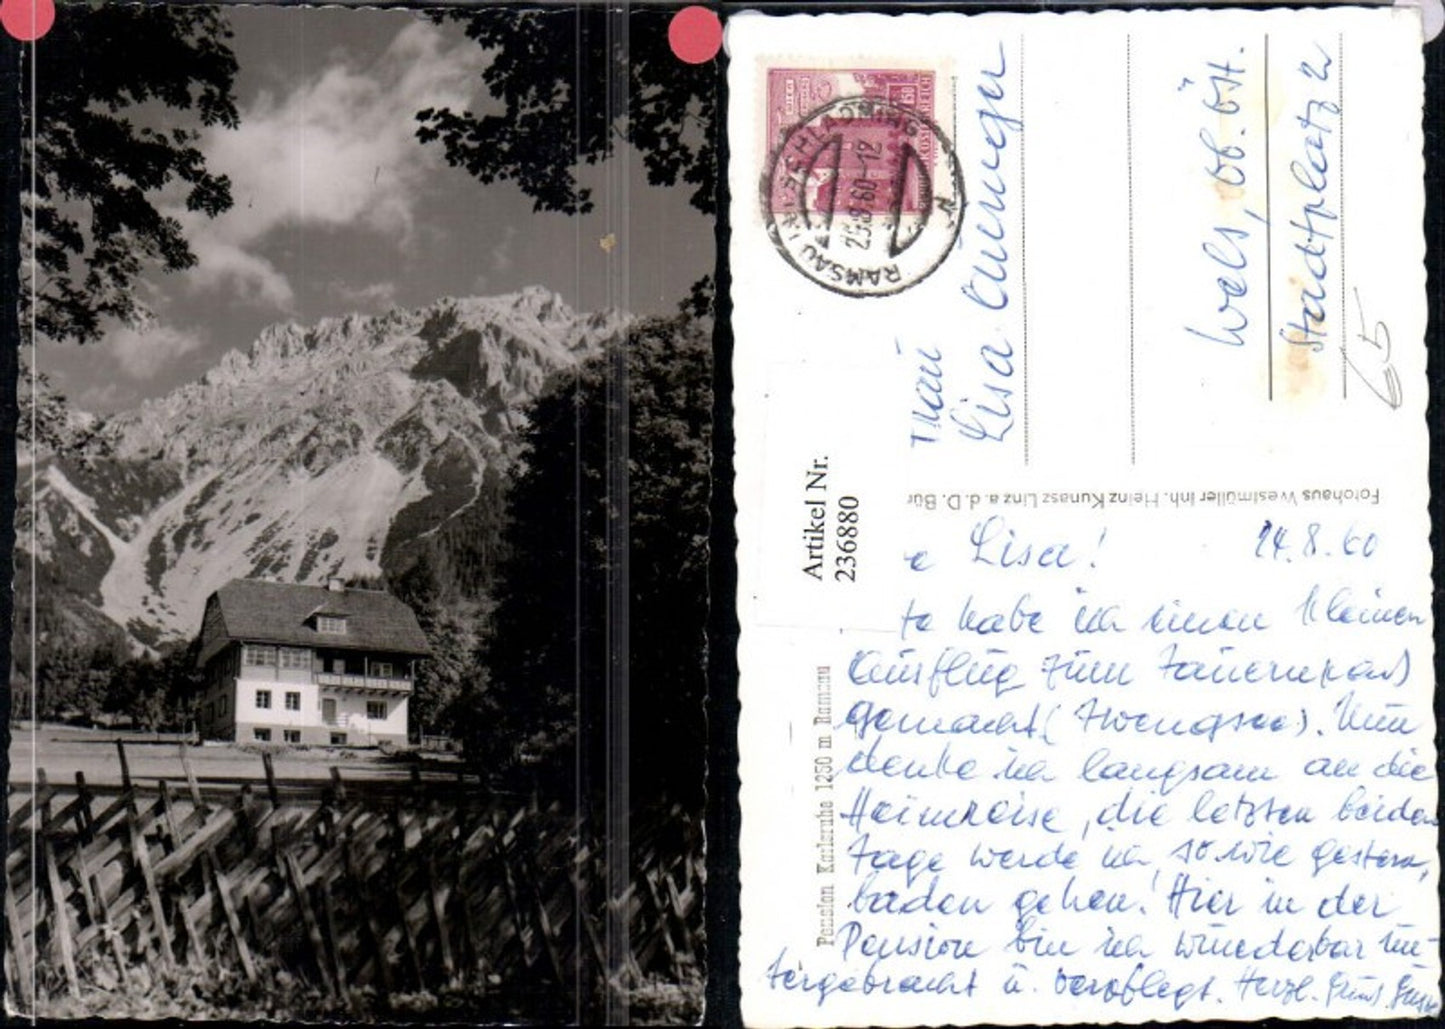 RAMSAU
SCHLADMING
25.8.60-12
Lisa
Wels, Ob. Öst.
Stadtplatz 2
65
Artikel Nr.
236880
Fotohaus Westmüller Inh. Heinz Kunasz Linz a. d. D. Bür
Pension Karlsruhe 1250 m Ramsau
e Lisa! 24.8.60
te habe ich einen kleinen
Ausflug zum Tauernpaß
gemacht (Zwengsee). Nun
denke ich langsam an die
Heimreise, die letzten beiden
Tage werde ich, so wie gestern,
baden gehen! Hier in der
Pension bin ich wunderbar un-
tergebracht u. verpflegt. Herzl. Gruß